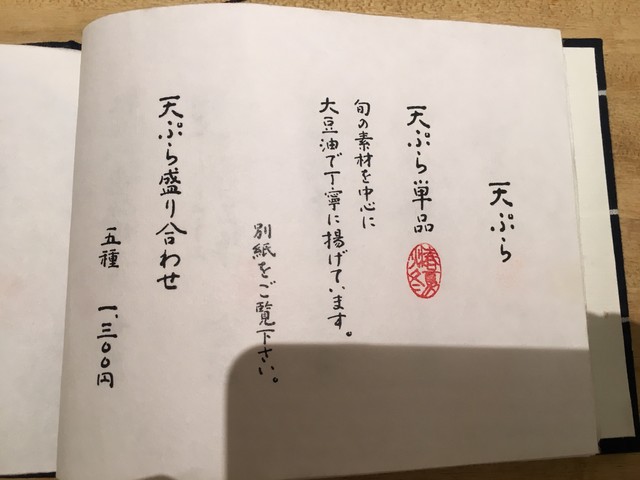 天ぷら
天ぷら単品
春夏秋冬
旬の素材を中心に
大豆油で丁寧に揚げています。
別紙をご覧下さい。
天ぷら盛り合わせ
五種 一、三〇〇円